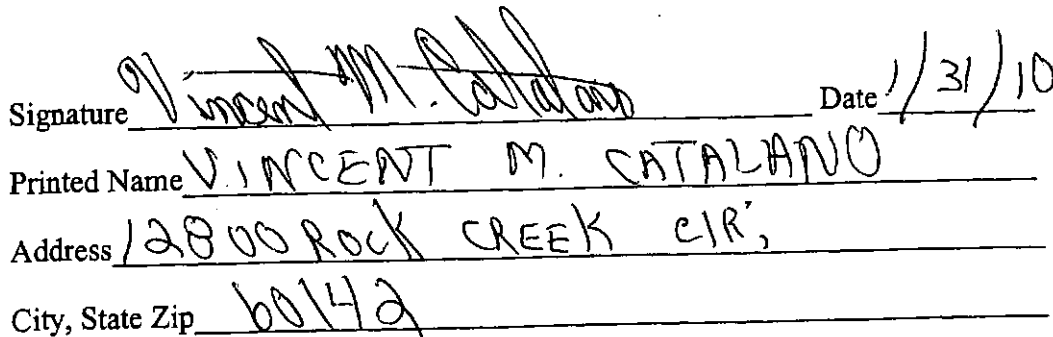 Signature Vincent M. Catalano Date 1/31/10
Printed Name VINCENT M. CATALANO
Address 12800 ROCK CREEK CIR,
City, State Zip 60142